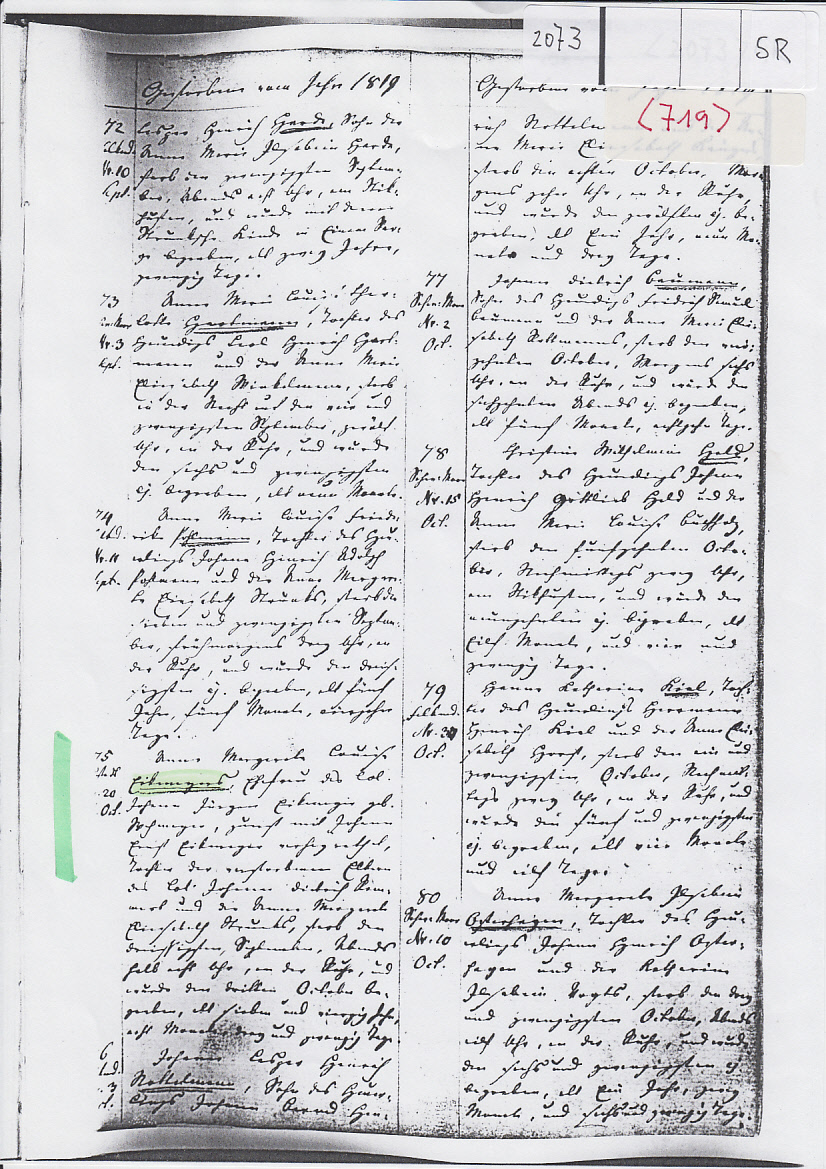 2073
SR
(2073)
<719>
Gestorben vom Jahr 1819
72
Nr. 10
Spt.
Casper Henrich Harde, Sohn der
Anne Marie Ilsabein Harde,
starb den zwanzigsten Septem-
ber, Abends acht Uhr, am Stik-
husten, und wurde mit dem
Strunkschen Kinde in Einem Sar-
ge begraben, alt zwey Jahre,
zwanzig Tage.
73
Nr. 3
Spt.
Anne Marie Louise Char-
lotte Hartmann, Tochter des
Heuerlings Carl Henrich Hart-
mann und der Anne Marie
Elisabeth Winkelmann, starb
in der Nacht auf den vier und
zwanzigsten September, zwölf
Uhr, an der Ruhr, und wurde
den sechs und zwanzigsten
ej. begraben, alt neun Monate.
74
Nr. 11
Spt.
Anne Marie Louise Friede-
rike Pohlmann, Tochter des Heu-
erlings Johann Henrich Adolph
Pohlmann und der Anne Margare-
te Elisabeth Strunks, starb den
sieben und zwanzigsten Septem-
ber, frühmorgens drey Uhr, an
der Ruhr, und wurde den dreis-
sigsten ej. begraben, alt fünf
Jahr, fünf Monate, vierzehn
Tage.
75
20
Oct.
Anne Margarete Louise
Eikmeyers, Ehefrau des Col.
Johann Jürgen Eikmeyer geb.
zuerst mit Johann
Ernst Eikmeyer verheyrathet,
Tochter der verstorbenen Eltern
des Col. Johann Diedrich
und der Anne Margarete
Elisabeth Strunks, starb den
dreissigsten September, Abends
halb acht Uhr, an der Ruhr, und
wurde den dritten October be-
graben, alt sieben und vierzig Jahr,
acht Monate, drey und zwanzig Tage.
6
Johann Casper Henrich
Nottelmann, Sohn des Heuer-
lings Johann Bernd Hen-
Gestorben vom
rich Nottelm
ne Marie
starb den achten October, Mor-
gens zehen Uhr, an der Ruhr,
und wurde den zwölften ej. be-
graben, alt Ein Jahr, neun Mo-
nate und drey Tage.
77
Nr. 2
Oct.
Johann Diedrich Baumann,
Sohn des Heuerlings Friedrich
Baumann und der Anne Marie Eli-
sabeth Rottmanns, starb den vier-
zehnten October, Morgens sechs
Uhr, an der Ruhr, und wurde den
siebzehnten Abends ej. begraben,
alt fünf Monate, achtzehn Tage.
78
Nr. 15
Oct.
Christine Wilhelmine Held,
Tochter des Heuerlings Johann
Henrich Gottlieb Held und der
Anne Marie Louise Buchholz,
starb den fünfzehnten Octo-
ber, Nachmittags zwey Uhr,
am Stikhusten, und wurde den
neunzehnten ej. begraben, alt
Eilf Monate, und vier und
zwanzig Tage.
79
Nr. 34
Oct.
Hanne Catharine Kiel, Toch-
ter des Heuerlings Hermann
Henrich Kiel und der Anne Eli-
sabeth Horst, starb den ein und
zwanzigsten October, Nachmit-
tags zwey Uhr, an der Ruhr, und
wurde den fünf und zwanzigsten
ej. begraben, alt vier Monate
und eilf Tage.
80
Nr. 10
Oct.
Anne Margarete Ilsabein
Osterhagen, Tochter des Heu-
erlings Johann Henrich Oster-
hagen und der Katharine
Ilsabein Vogts, starb den drey
und zwanzigsten October, Abends
eilf Uhr, an der Ruhr, und wurde
den sechs und zwanzigsten ej.
begraben, alt Ein Jahr, zwey
Monate, und sechs und zwanzig Tage.